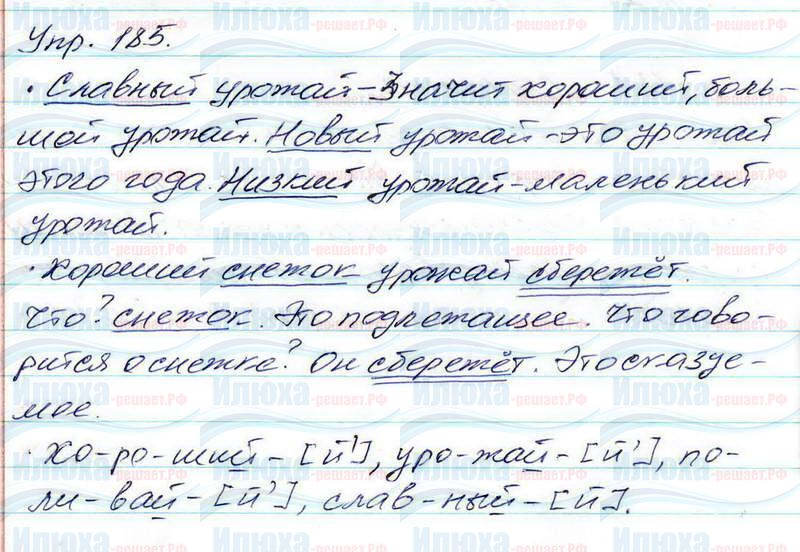 Упр. 185.
· Славный урожай – Значит хороший, боль-
шой урожай. Новый урожай – это урожай
этого года. Низкий урожай – маленький
урожай.
· Хороший снежок урожай сбережёт.
Что? снежок. Это подлежащее. Что гово-
рится о снежке? Он сбережёт. Это сказуе-
мое.
· Хо-ро-ший – [й'], уро-жай – [й'], по-
ли-вай – [й'], слав-ный – [й].